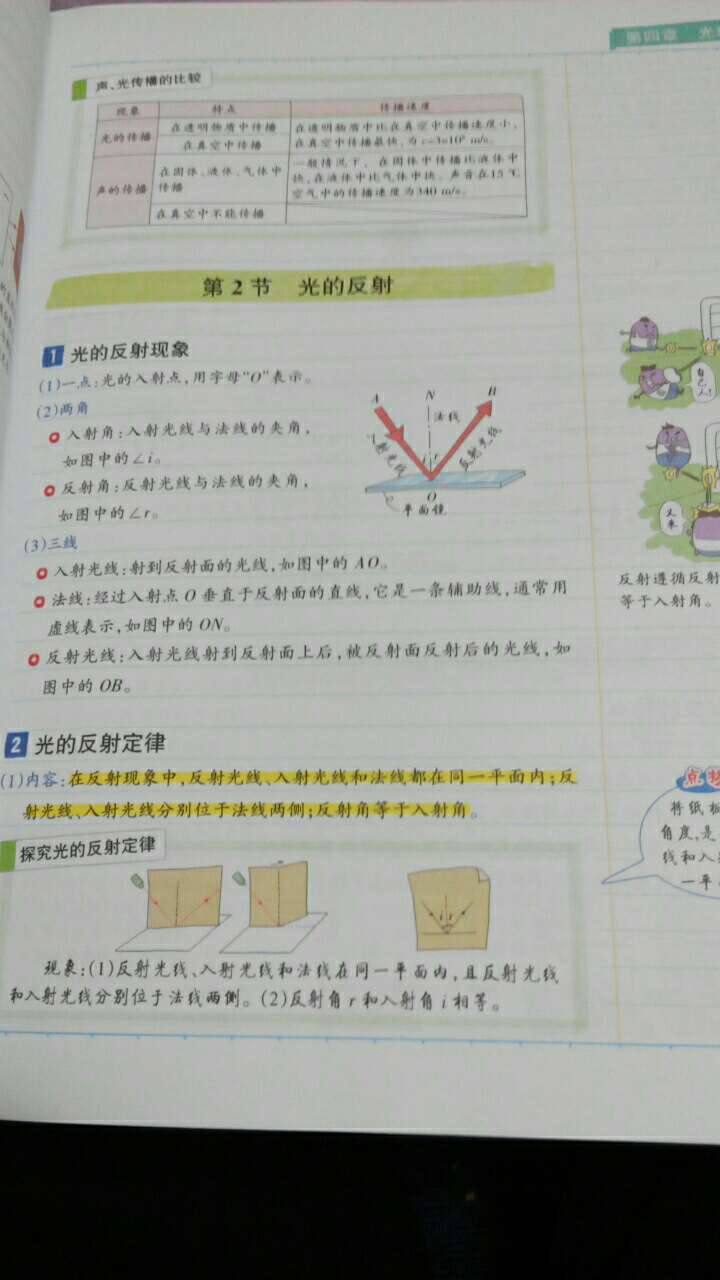 第四章 光
声、光传播的比较
现象 特点 传播速度
光的传播
在透明物质中传播
在真空中传播
在透明物质中比在真空中传播速度小,
在真空中传播最快,为c=3×10⁸ m/s。
声的传播
在固体、液体、气体中
传播
一般情况下,在固体中传播比液体中
快,在液体中比气体中快。声音在15 ℃
空气中的传播速度为340 m/s。
在真空中不能传播
第2节 光的反射
1 光的反射现象
(1)一点:光的入射点,用字母“O”表示。
(2)两角
入射角:入射光线与法线的夹角,
如图中的∠i。
反射角:反射光线与法线的夹角,
如图中的∠r。
A N B
法线
入射光线
反射光线
i r
O
平面镜
(3)三线
入射光线:射到反射面的光线,如图中的 AO。
法线:经过入射点 O 垂直于反射面的直线,它是一条辅助线,通常用
虚线表示,如图中的 ON。
反射光线:入射光线射到反射面上后,被反射面反射后的光线,如
图中的 OB。
2 光的反射定律
(1)内容:在反射现象中,反射光线、入射光线和法线都在同一平面内;反
射光线、入射光线分别位于法线两侧;反射角等于入射角。
探究光的反射定律
i r
现象:(1)反射光线、入射光线和法线在同一平面内,且反射光线
和入射光线分别位于法线两侧。(2)反射角 r 和入射角 i 相等。
自己
人!
又来
反射遵循反射
等于入射角。
点
将纸板
角度,是
线和入
一平